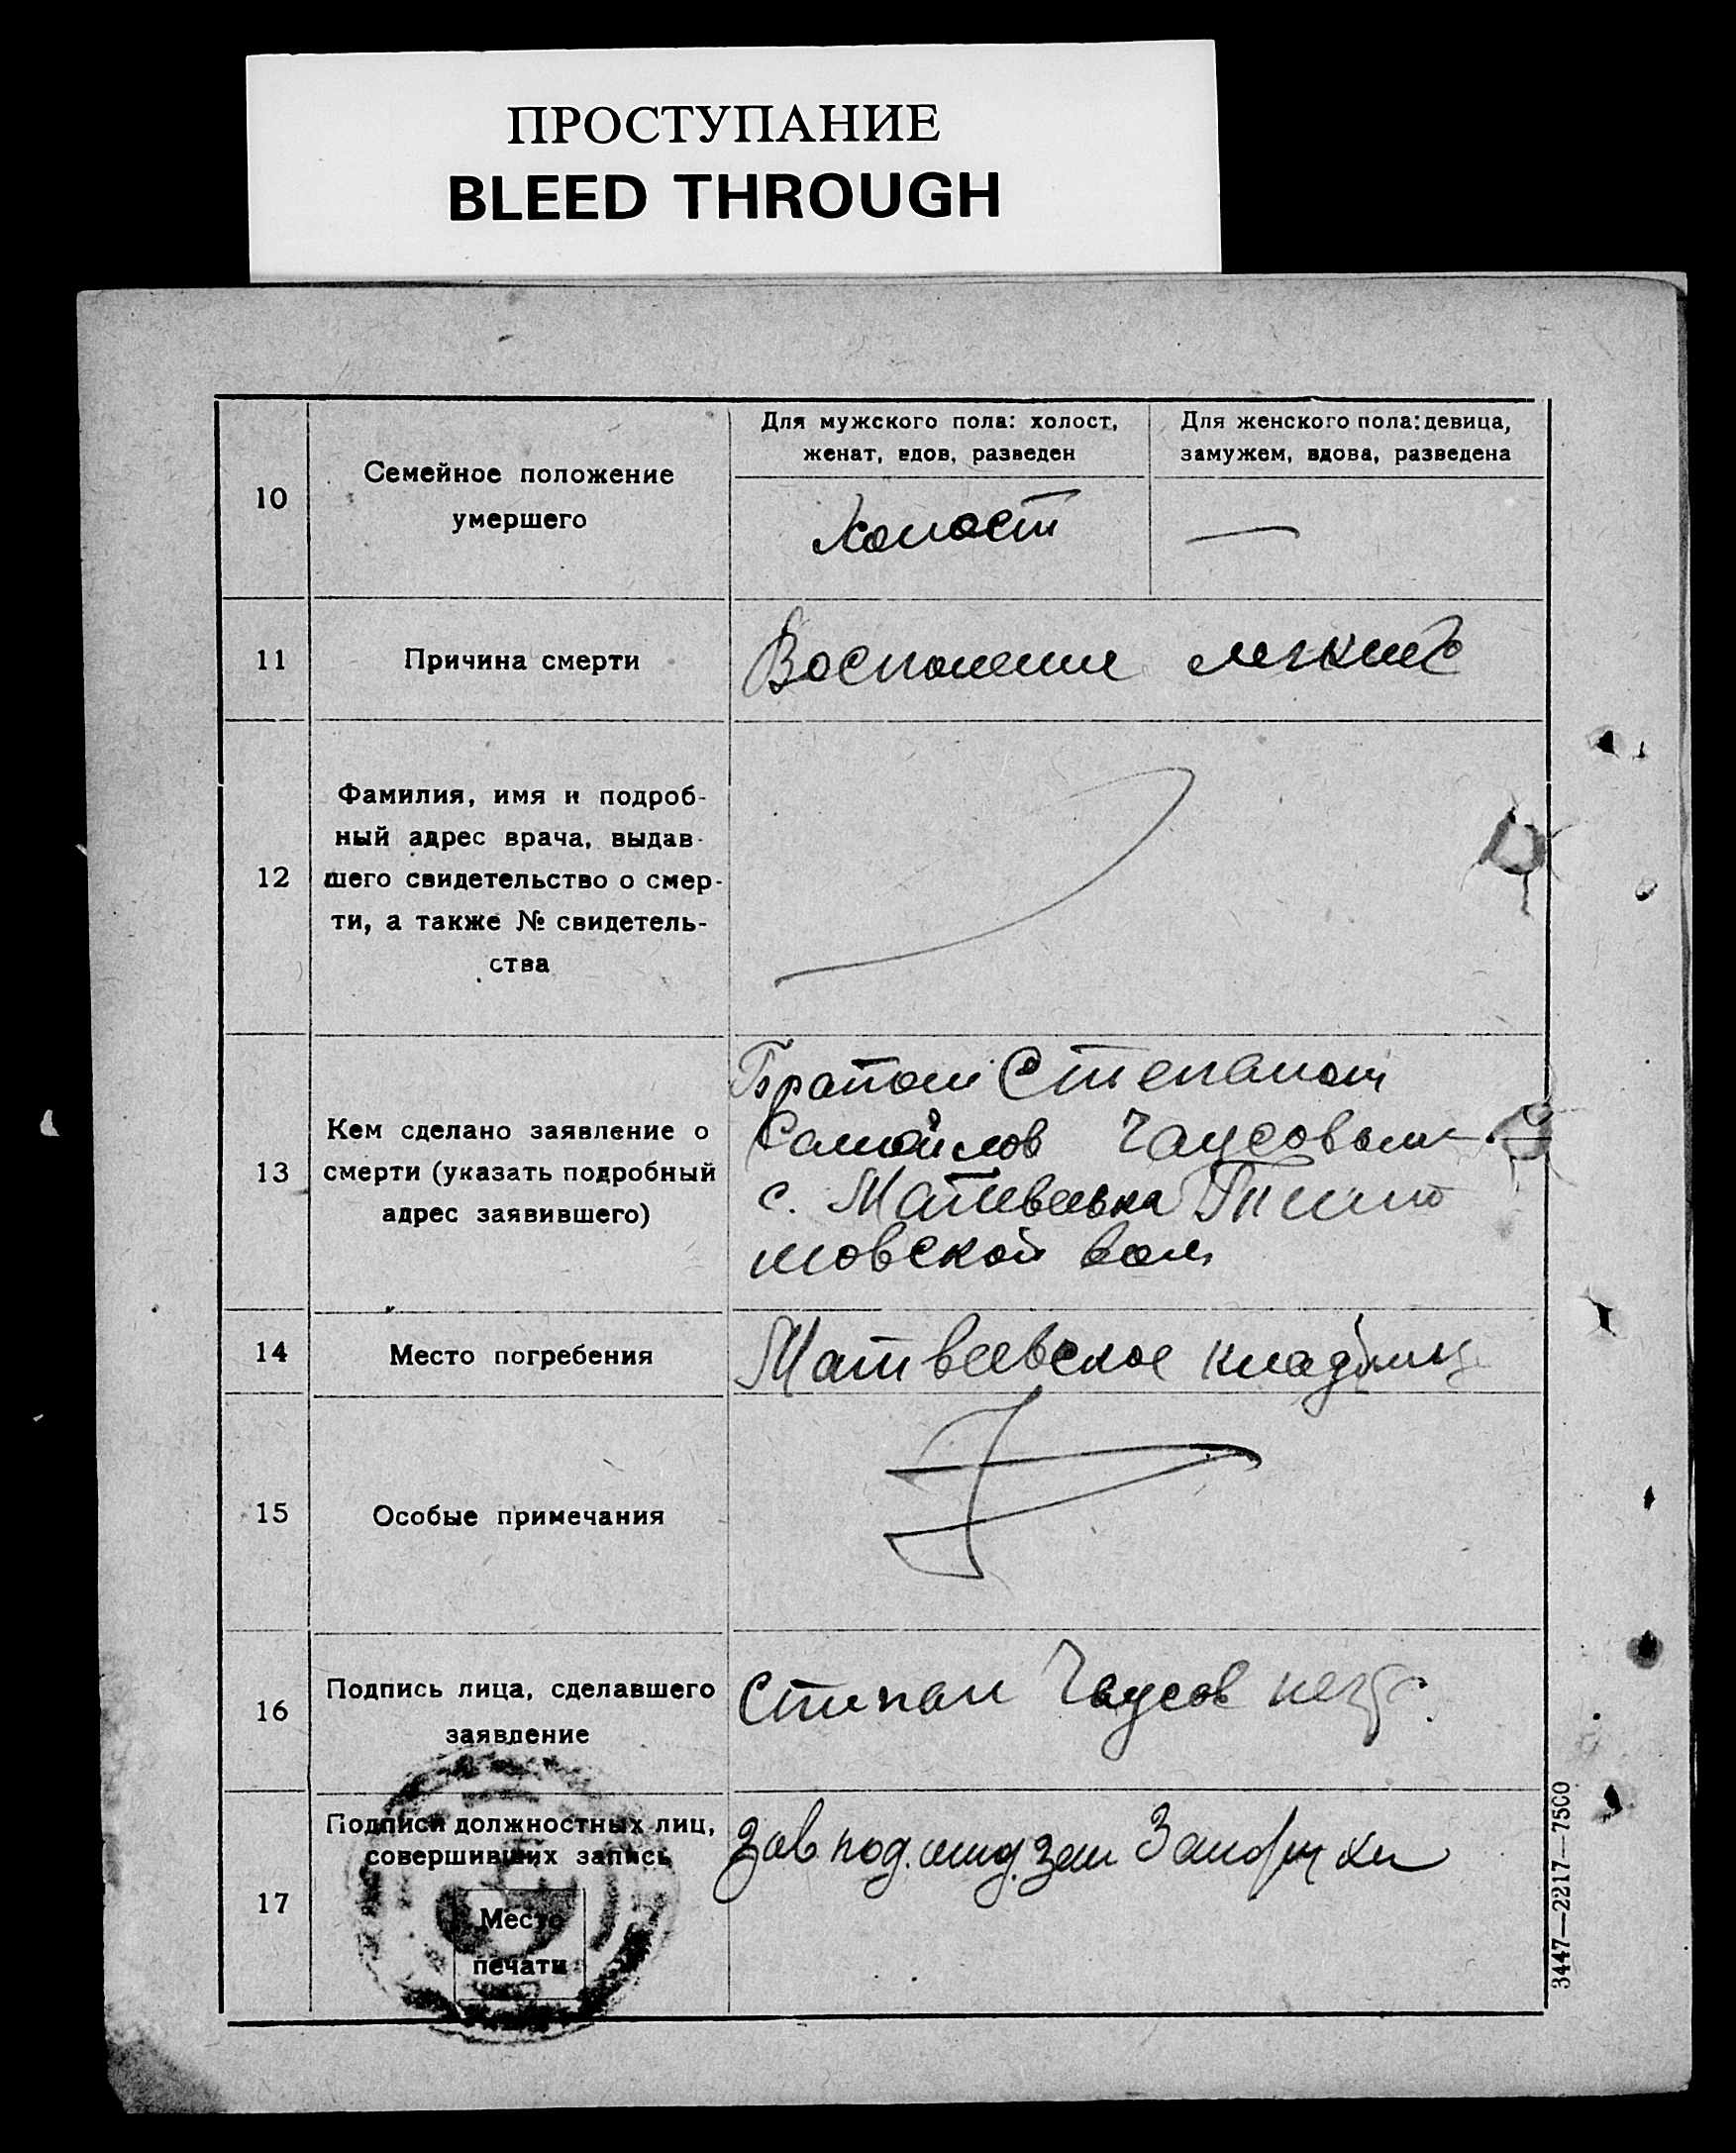 ПРОСТУПАНИЕ
BLEED THROUGH
10
Семейное положение
умершего
Для мужского пола: холост,
женат, вдов, разведен
Для женского пола: девица,
замужем, вдова, разведена
Холост
—
11
Причина смерти
Воспаление легких
12
Фамилия, имя и подроб-
ный адрес врача, выдав-
шего свидетельство о смер-
ти, а также № свидетель-
ства
13
Кем сделано заявление о
смерти (указать подробный
адрес заявившего)
Братом Степаном
Самойлов Чаусовым
с. Матвеевка
мовской вол
14
Место погребения
Матвеевское кладбищ
15
Особые примечания
16
Подпись лица, сделавшего
заявление
Степан Чаусов негр.
17
Подписи должностных лиц,
совершивших запись
Место
печати
Зав под.
3447—2217—7500